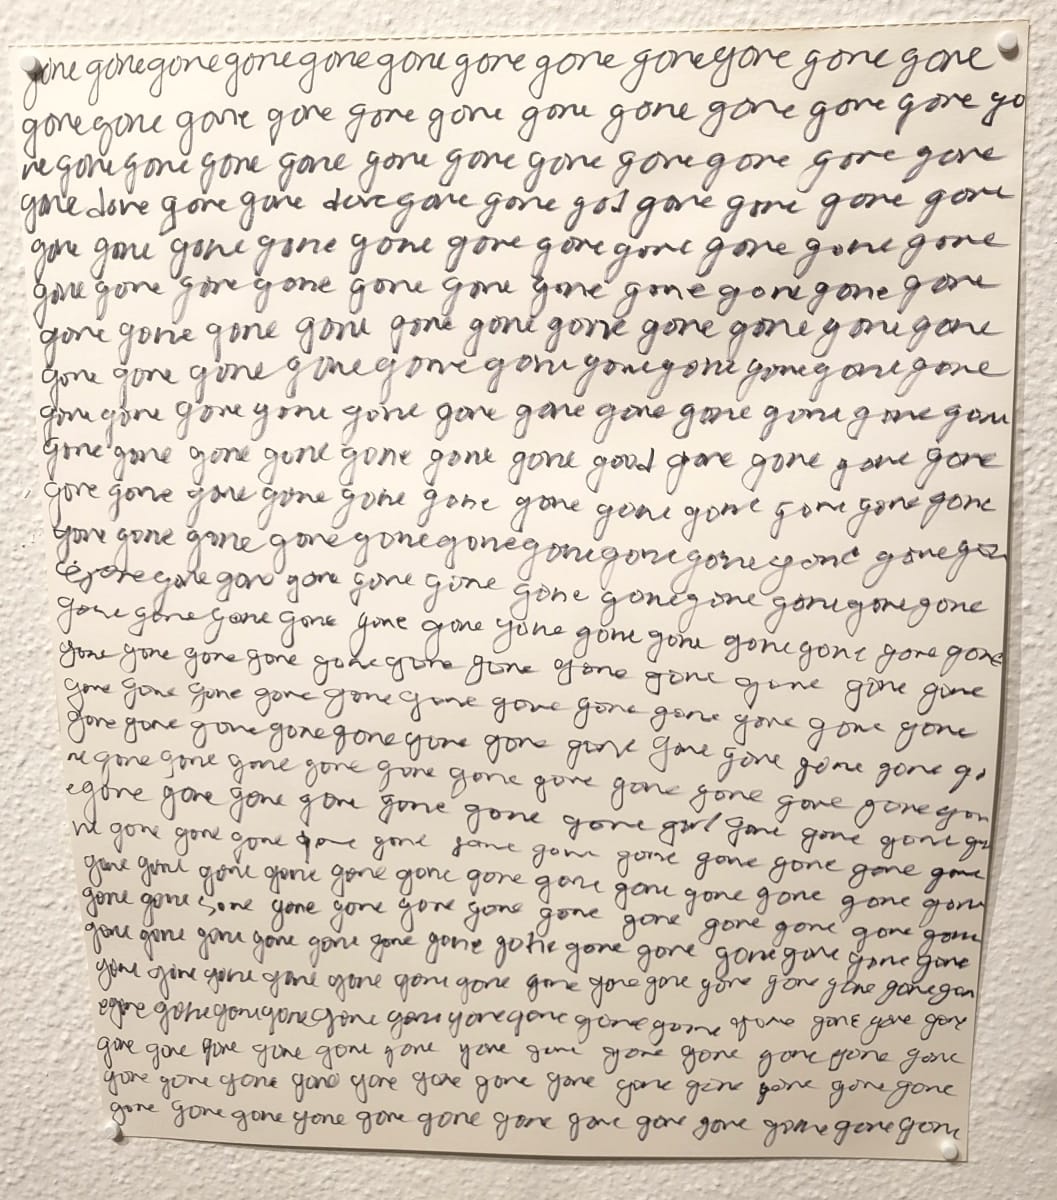 gone gone gone gone gone gone gone gone gone gone gone gone
gone gone gone gone gone gone gone gone gone gone gone go
ne gone gone gone gone gone gone gone gone gone gone gone
gone done gone gone done gone gone god gone gone gone gone
gone gone gone gone gone gone gone gone gone gone gone
gone gone gone gone gone gone gone gone gone gone gone
gone gone gone gone gone gone gone gone gone gone gone
gone gone gone gone gone gone gone gone gone gone gone
gone gone gone gone gone gone gone gone gone gone gone gone
gone gone gone gone gone gone gone good gone gone gone gone
gone gone gone gone gone gone gone gone gone gone gone gone
gone gone gone gone gone gone gone gone gone gone gone gon
gone gone gone gone gone gone gone gone gone gone gone gone
gone gone gone gone gone gone gone gone gone gone gone gone gone
gone gone gone gone gone gone gone gone gone gone gone gone
gone gone gone gone gone gone gone gone gone gone gone gone
gone gone gone gone gone gone gone gone gone gone gone gone go
ne gone gone gone gone gone gone gone gone gone gone gone gon
e gone gone gone gone gone gone gone girl gone gone gone go
ne gone gone gone gone gone same gone gone gone gone gone gone
gone gone gone gone gone gone gone gone gone gone gone gone gone
gone gone some gone gone gone gone gone gone gone gone gone gone
gone gone gone gone gone gone gone gone gone gone gone gone gone
gone gone gone gone gone gone gone gone gone gone gone gone gone gone gon
egone gone gone gone gone gone gone gone gone gone gone gone gone gone
gone gone gone gone gone gone gone gone gone gone gone gone gone
gone gone gone gone gone gone gone gone gone gone gone gone gone
gone gone gone gone gone gone gone gone gone gone gone gone gone